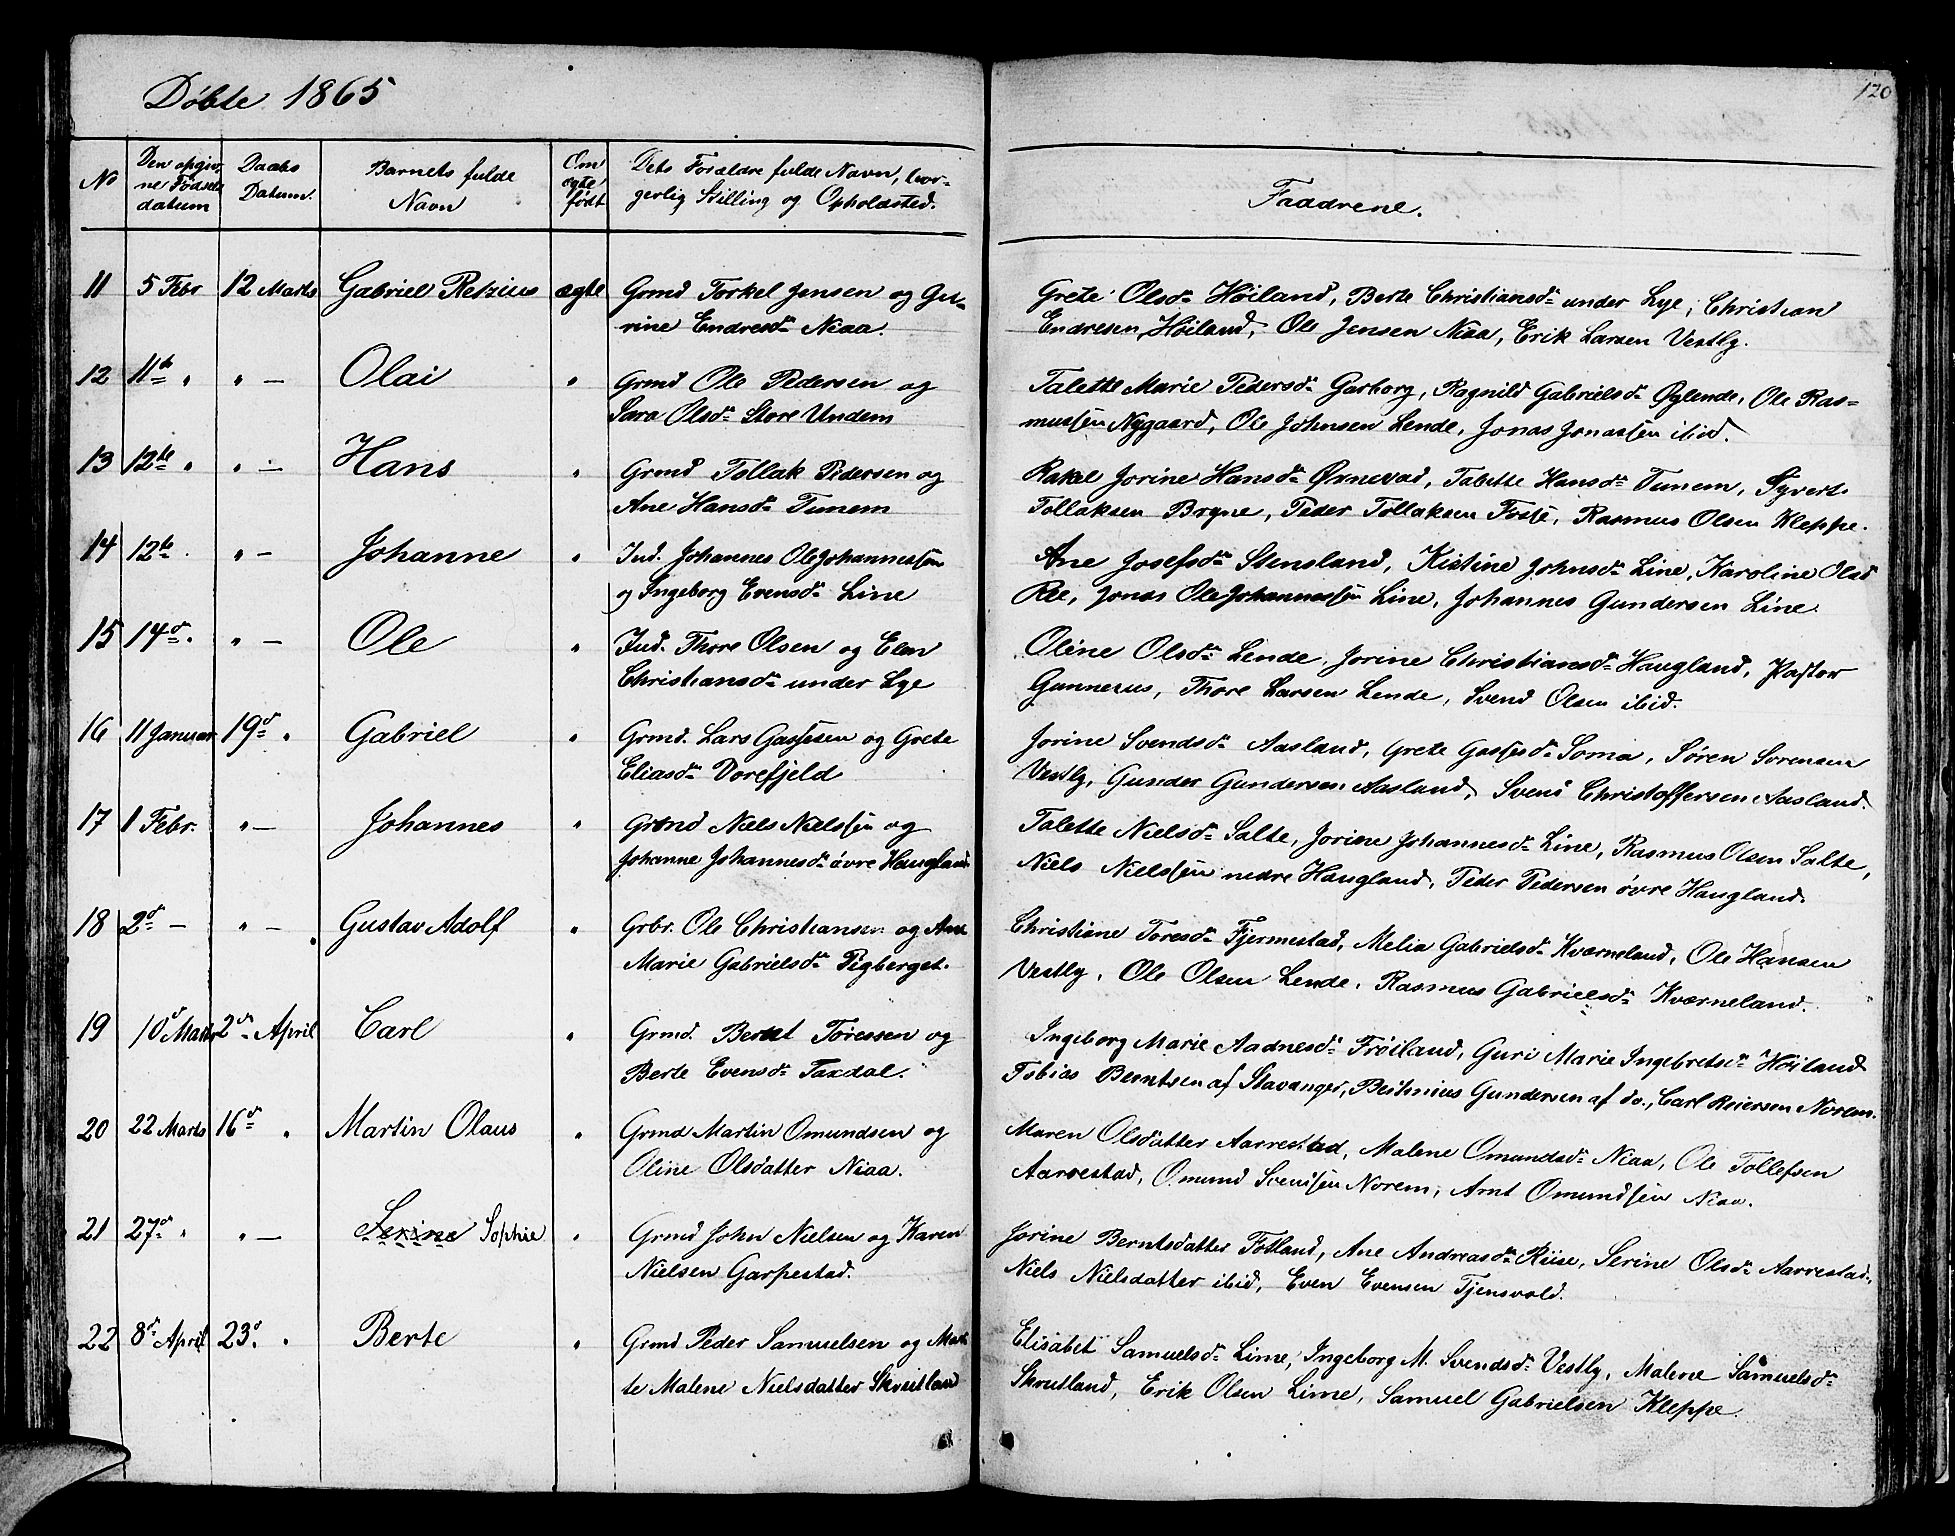 Døbte 1865
120
No
Den opgiv-
ne Fødsels
datum
Daabs
Datum.
Barnets fulde
Navn
Om
ægte
født
Dets Forældre fulde Navn, bor-
gerlig Stilling og Opholdsted.
Faddrene.
11 5 Febr 12 Marts Gabriel Retzius ægte Grmd Torkel Jensen og Gu-
rine Endresdr Niaa.
Grete Olsdr Høiland, Berte Christiansdr under Lye, Christian
Endresen Høiland, Ole Jensen Niaa, Erik Larsen Vestly.
12 11te " " — Olai " Grmd Ole Pedersen og
Sara Olsdr Store Undem
Talette Marie Pedersdr Garborg, Ragnild Gabrielsdr Øglende, Ole Ras-
mussen Nygaard, Ole Johnsen Lende, Jonas Jonassen ibid.
13 12te " " — Hans " Grmd Tollak Pedersen og
Ane Hansdr Tunem
Rakel Jorine Hansdr Ørnevad, Talette Hansdr Tunem, Syvert
Tollaksen Bryne, Peder Tollaksen Fosse, Rasmus Olsen Kleppe.
14 12te " " — Johanne " Ind. Johannes Ole Johannessen
og Ingeborg Evensdr Line
Ane Josefsdr Stensland, Kistine Johnsdr Line, Karoline Olsd
Ree, Jonas Ole Johannessen Line, Johannes Gundersen Line.
15 14d " " — Ole " Ind. Thore Olsen og Elen
Christiansdr under Lye
Oline Olsdr Lende, Jorine Christiansdr Haugland, Pastor
Gunnerus, Thore Larsen Lende, Svend Olsen ibid.
16 11 Januar 19d " Gabriel " Grmd. Lars Gassesen og Grete
Eliasdr Dorefjeld
Jorine Svendsdr Aasland, Grete Gassesdr Soma, Søren Sørensen
Vestly, Gunder Gundersen Aasland, Svend Christoffersen Aasland.
17 1 Febr. " — Johannes " Grmd Niels Nielssen og
Johanne Johannesdr øvre Haugland
Talette Nielsdr Salte, Jorine Johannesdr Line, Rasmus Olsen Salte,
Niels Nielssen nedre Haugland, Peder Pedersen øvre Haugland.
18 2d — " — Gustav Adolf " Grbr. Ole Christiansen og Ane
Marie Gabrielsdr Pigberget.
Christiane Toresdr Fjermestad, Melia Gabrielsdr Kværneland, Ole Hansen
Vestly, Ole Olsen Lende, Rasmus Gabrielsdr Kværneland.
19 10d Marts 2den April Carl " Grmd. Bernt Toressen og
Berte Evensdr Taxdal.
Ingeborg Marie Aadnesdr Frøiland, Guri Marie Ingebretsdr Høiland
Tobias Berntsen af Stavanger, Gundersen af do., Carl Reiersen Norem.
20 22 Marts 16d " Martin Olaus " Grmd Martin Omundsen og
Oline Olsdatter Niaa.
Maren Olsdatter Aarrestad, Malene Omundsdr Niaa, Ole Tollefsen
Aarrestad, Omund Svendsen Norem, Arnt Omundsen Niaa.
21 27d " " — Serine Sophie " Grmd John Nielsen og Karen
Nielsen Garpestad.
Jorine Berntsdatter Fotland, Ane Andreasdr Riise, Serine Olsdr Aarrestad,
Niels Nielsdatter ibid, Even Evensen Tjensvold.
22 8d April 23d " Berte " Grmd Peder Samuelsen og Mar-
te Malene Nielsdatter Skrutland
Elisabet Samuelsdr Lime, Ingeborg M. Svendsdr Vestly, Malene Samuelsdr
Skrutland, Erik Olsen Lime, Samuel Gabrielsen Kleppe.